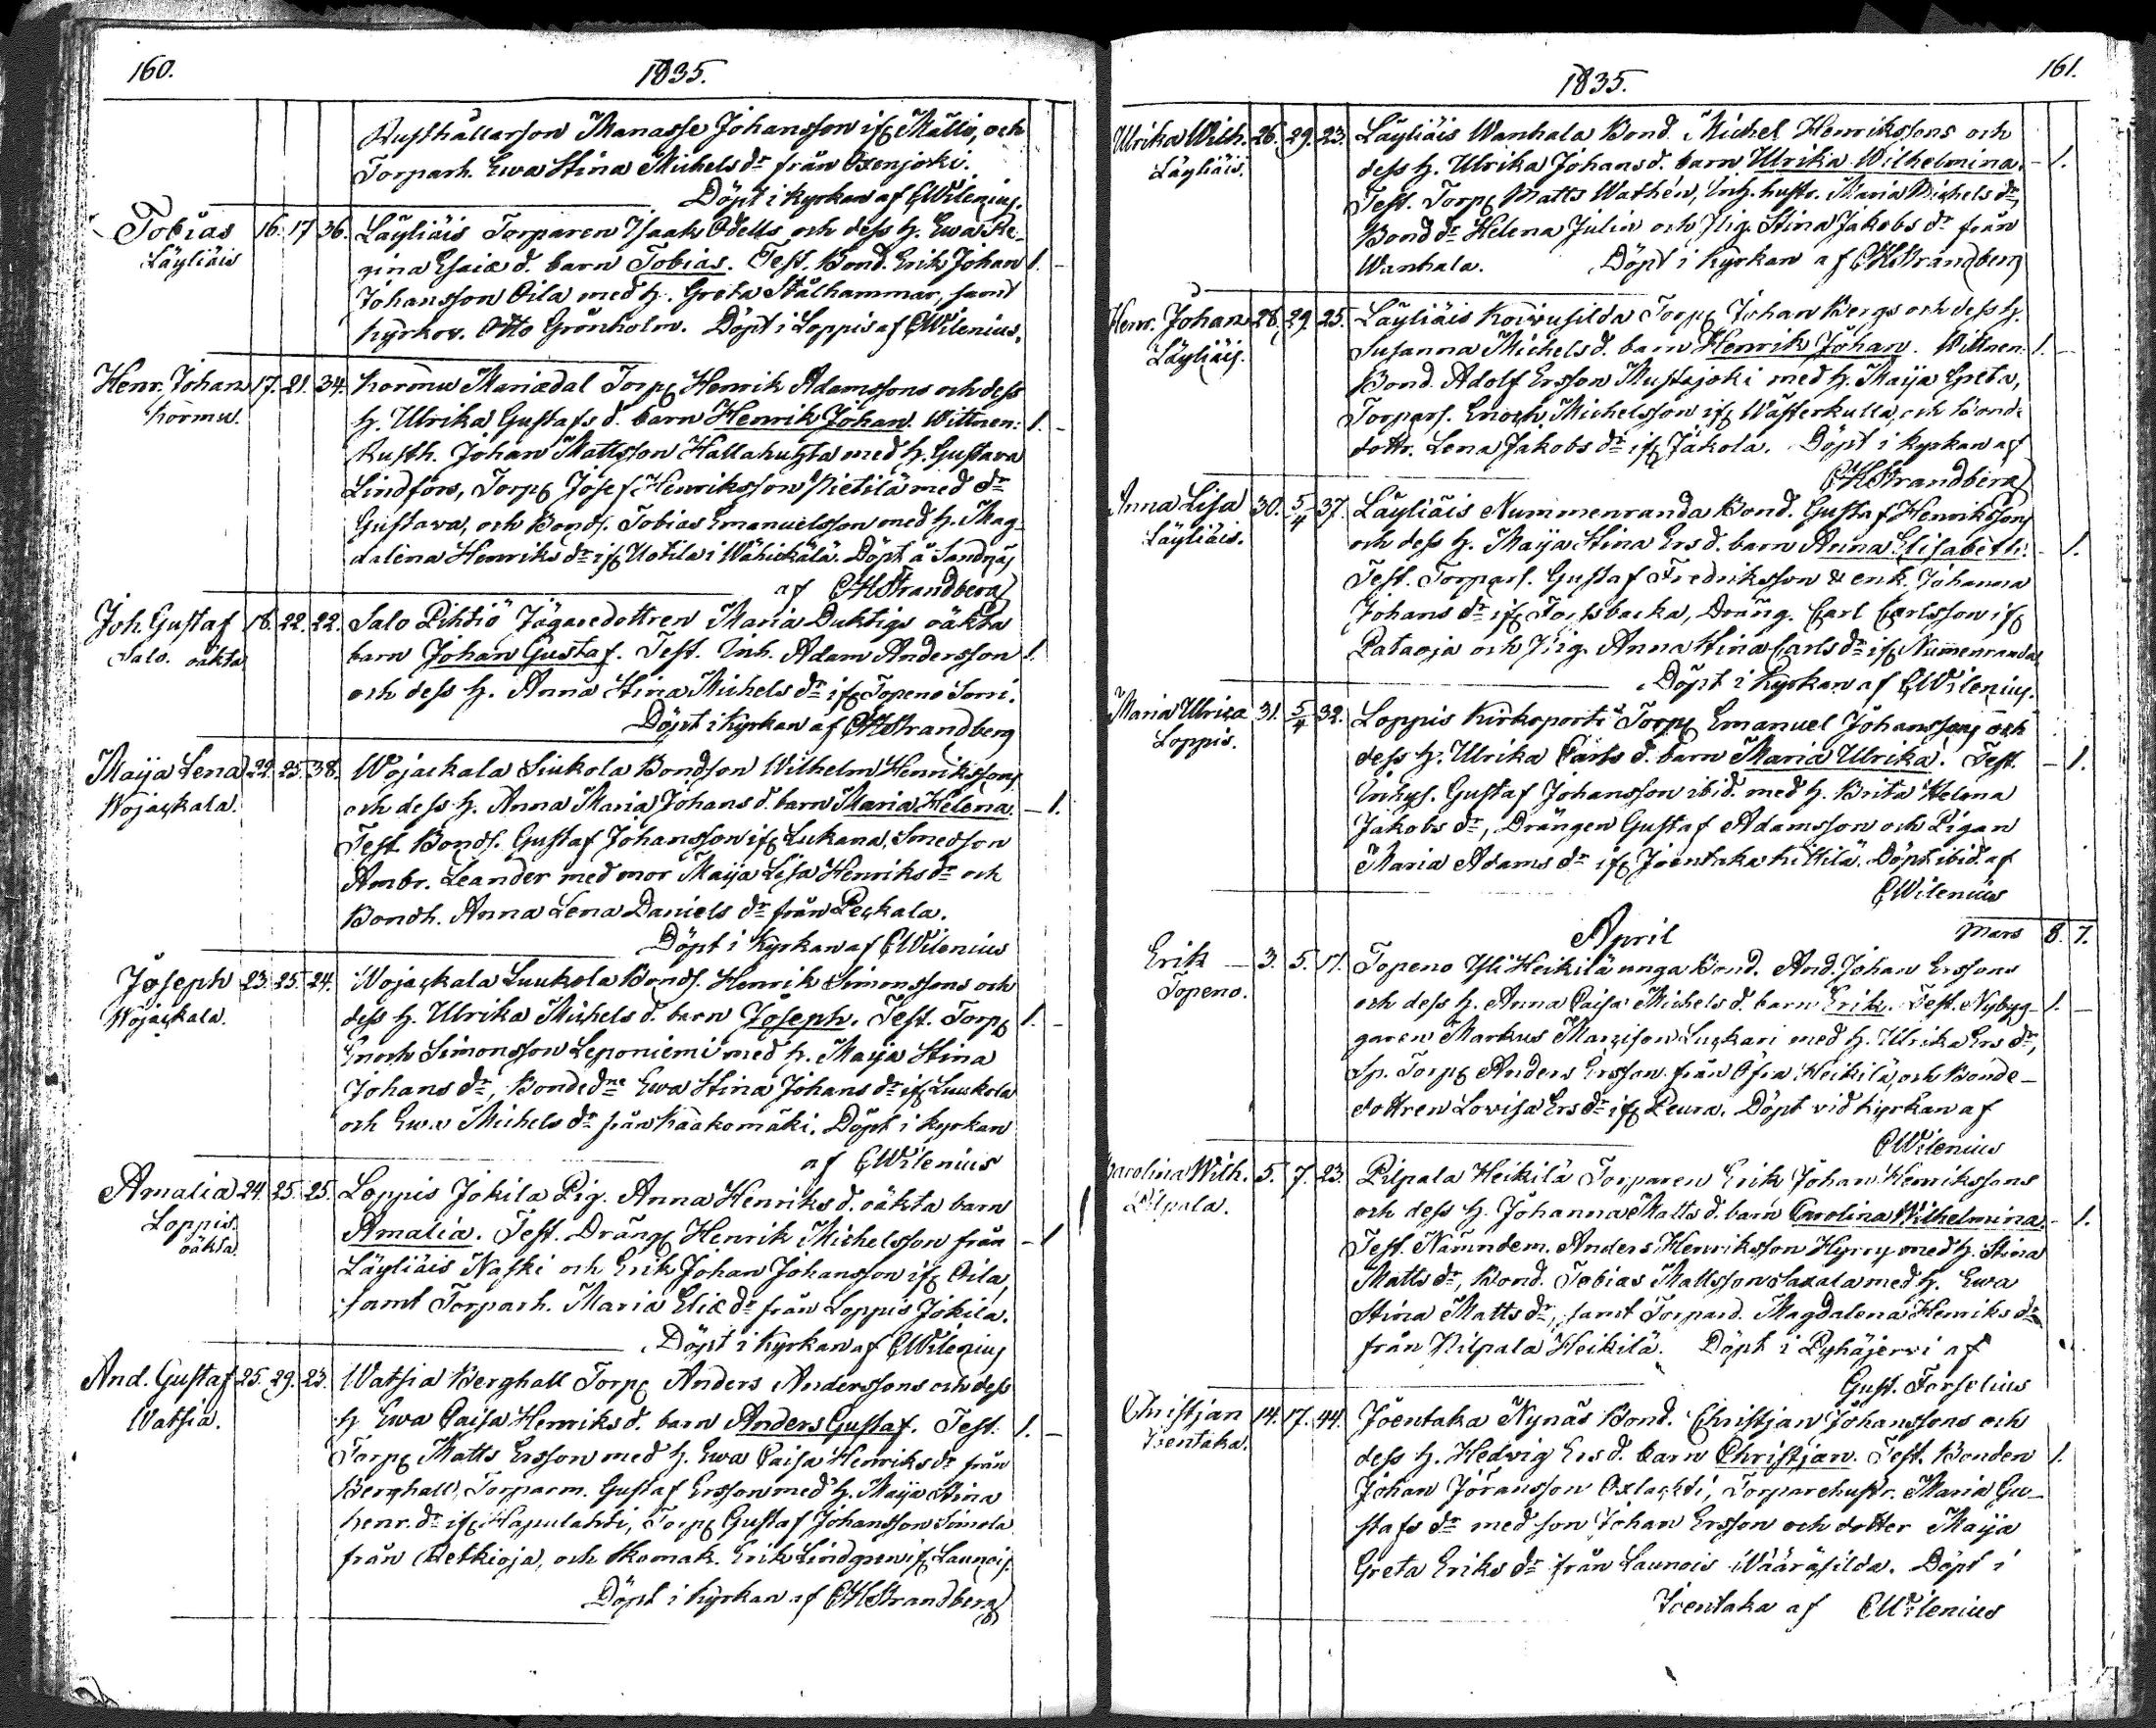 160.
1835.
Rusthållarson Manasse Johansson ifr Mälli, och
Torparh. Ewa Stina Michels dr från Oxenjoki.
Döpt i Kyrkan af CWilenius.
Tobias 16. 17 36. Läyliäis Torparen Isaak Odells och dess h. Ewa Re-
Läyliäis gina Esaiæ d. barn Tobias. Test. Bond. Erik Johan 1. -
Johansson Oila med h. Greta Stålhammar, samt
Kyrkov. Otto Grönholm. Döpt i Loppis af CWilenius.
Henr. Johan 17. 21. 34. Kormu Mariædal Torp. Henrik Adamssons och dess
Kormu. h. Ulrika Gustafs d. barn Henrik Johan. Wittnen: 1. -
Rusth. Johan Mattsson Hallahuhta med h. Gustava
Lindfors, Torp. Josef Henriksson Pietilä med dr
Gustava, och Bonds. Tobias Emanuelsson med h. Mag-
dalena Henriks dr ifr Uotila i Wähickälä. Döpt å Sandnäs
af CHStrandberg
Joh. Gustaf 18. 22. 22. Salo Pihtiö Jägaredottren Maria Duktigs oäkta
Salo. oäkta barn Johan Gustaf. Test. Inh. Adam Andersson 1.
och dess h. Anna Stina Michels dr ifr Topeno Sorri.
Döpt i Kyrkan af CHStrandberg
Maija Lena 22. 25. 38. Wojackala Siukola Bondson Wilhelm Henrikssons
Wojackala. och dess h. Anna Maria Johans d. barn Maria Helena. - 1.
Test. Bonds. Gustaf Johansson ifr Lukana, Smedson
Ambr. Leander med mor Maija Lisa Henriks dr och
Bondh. Anna Lena Daniels dr från Peckala.
Döpt i Kyrkan af CWilenius
Joseph 23. 25. 24. Wojackala Luukola Bonds. Henrik Simonssons och
Wojackala. dess h. Ulrika Michels d. barn Joseph. Test. Torp. 1. -
Enoch Simonsson Leponiemi med h. Maija Stina
Johans dr, Bonde dne Ewa Stina Johans dr ifr Luukola
och Ewa Michels dr från Kaakomäki. Döpt i kyrkan
af CWilenius
Amalia 24. 25. 25. Loppis Jokila Pig. Anna Henriks d. oäkta barn
Loppis. Amalia. Test. Dräng. Henrik Michelsson från - 1
oäkta Läyliäis Naski och Erik Johan Johansson ifr Oila,
samt Torparh. Maria Eliæ dr från Loppis Jokila.
Döpt i Kyrkan af CWilenius
And. Gustaf 25. 29. 23. Watsia Berghall Torp. Anders Anderssons och dess
Watsia. h. Ewa Caisa Henriks d. barn Anders Gustaf. Test. 1. -
Torp. Matts Ersson med h. Ewa Caisa Henriks dr från
Berghall, Torparm. Gustaf Ersson med h. Maija Stina
Henr. dr ifr Hapulahti, Torp. Gustaf Johansson Simola
från Retkioja, och Skomak. Erik Lindgren ifr Launois.
Döpt i kyrkan af CHStrandberg
161.
1835.
Ulrika Wilh. 26. 29. 23. Läyliäis Wanhala Bond. Michel Henrikssons och
Läyliäis. dess h. Ulrika Johans d. barn Ulrika Wilhelmina. - 1.
Test. Torp. Matts Wathén, Inh. hustr. Maria Michels dr,
Bond dr Helena Julia och Pig. Stina Jakobs dr från
Wanhala. Döpt i Kyrkan af CHStrandberg
Henr. Johan 28. 29. 25. Läyliäis Koivusilda Torp. Johan Bergs och dess h.
Läyliäis. Susanna Michels d. barn Henrik Johan. Wittnen: 1. -
Bond. Adolf Ersson Mustajoki med h. Maija Greta,
Torpars. Enoch Michelsson ifr Wästerkulla, och Bond-
dottr. Lena Jakobs dr ifr Jakola. Döpt i kyrkan af
CHStrandberg
Anna Lisa 30. 5/4 37. Läyliäis Nummenranda Bond. Gustaf Henrikssons
Läyliäis. och dess h. Maija Stina Ers d. barn Anna Elisabeth. - 1.
Test. Torpars. Gustaf Fredriksson & enk. Johanna
Johans dr ifr Forssbacka, Dräng. Carl Carlsson ifr
Pataoja och Pig. Anna Stina Carls dr ifr Nummenranda
Döpt i Kyrkan af CWilenius.
Maria Ulrica 31. 5/4 32. Loppis Kirkoportti Torp. Emanuel Johanssons och
Loppis. dess h. Ulrika Carls d. barn Maria Ulrika. Test. - 1.
Inhys. Gustaf Johansson ibid. med h. Brita Helena
Jakobs dr, Drängen Gustaf Adamsson och Pigan
Maria Adams dr ifr Joentaka Kittilä. Döpt ibid. af
CWilenius
April Mars 8. 7.
Erik - 3. 5. 17. Topeno Yli Heikilä unga Bond. And. Johan Erssons
Topeno. och dess h. Anna Caisa Michels d. barn Erik. Test. Nybyg- 1. -
garen Markus Marcisson Luckari med h. Ulrika Ers dr,
Sp. Torp. Anders Ersson från Öfra Heikilä, och Bonde-
dottren Lovisa Ers dr ifr Peura. Döpt vid Kyrkan af
CWilenius
Carolina Wilh. 5. 7. 23. Pilpala Heikilä Torparen Erik Johan Henrikssons
Pilpala. och dess h. Johanna Matts d. barn Carolina Wilhelmina. - 1.
Test. Nämndem. Anders Henriksson Hyrry med h. Stina
Matts dr, Bond. Tobias Mattsson Saxala med h. Ewa
Stina Matts dr, samt Torpard. Magdalena Henriks dr
från Pilpala Heikilä. Döpt i Pyhäjervi af
Gust. Forselius
Christjan 14. 17. 44. Joentaka Nynäs Bond. Christjan Johanssons och
Joentaka. dess h. Hedwig Ers d. barn Christjan. Test. Bonden 1.
Johan Göransson Oxlachti, Torparehustr. Maria Gu-
stafs dr med son Johan Ersson och dotter Maija
Greta Eriks dr från Launois Wääräsilda. Döpt i
Joentaka af CWilenius